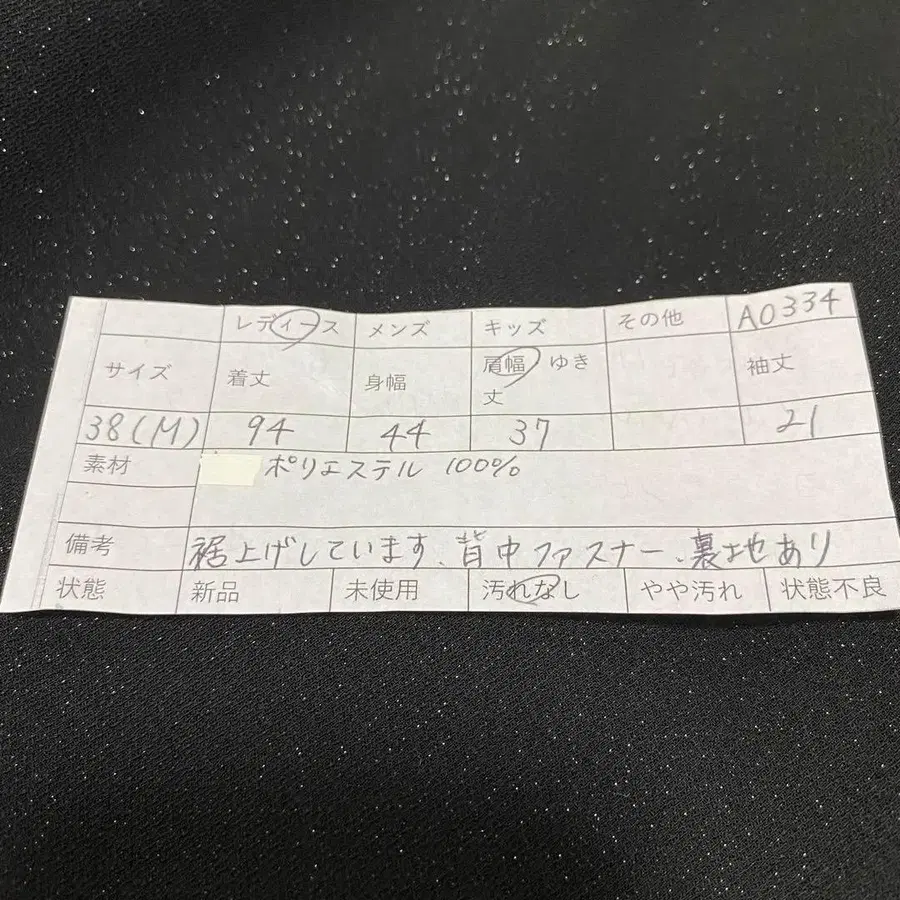 レディース メンズ キッズ その他 A0334
サイズ 着丈 身幅 肩幅 ゆき丈 袖丈
38(M) 94 44 37 21
素材 ポリエステル 100%
備考 裾上げしています、背中ファスナー、裏地あり
状態 新品 未使用 汚れなし やや汚れ 状態不良